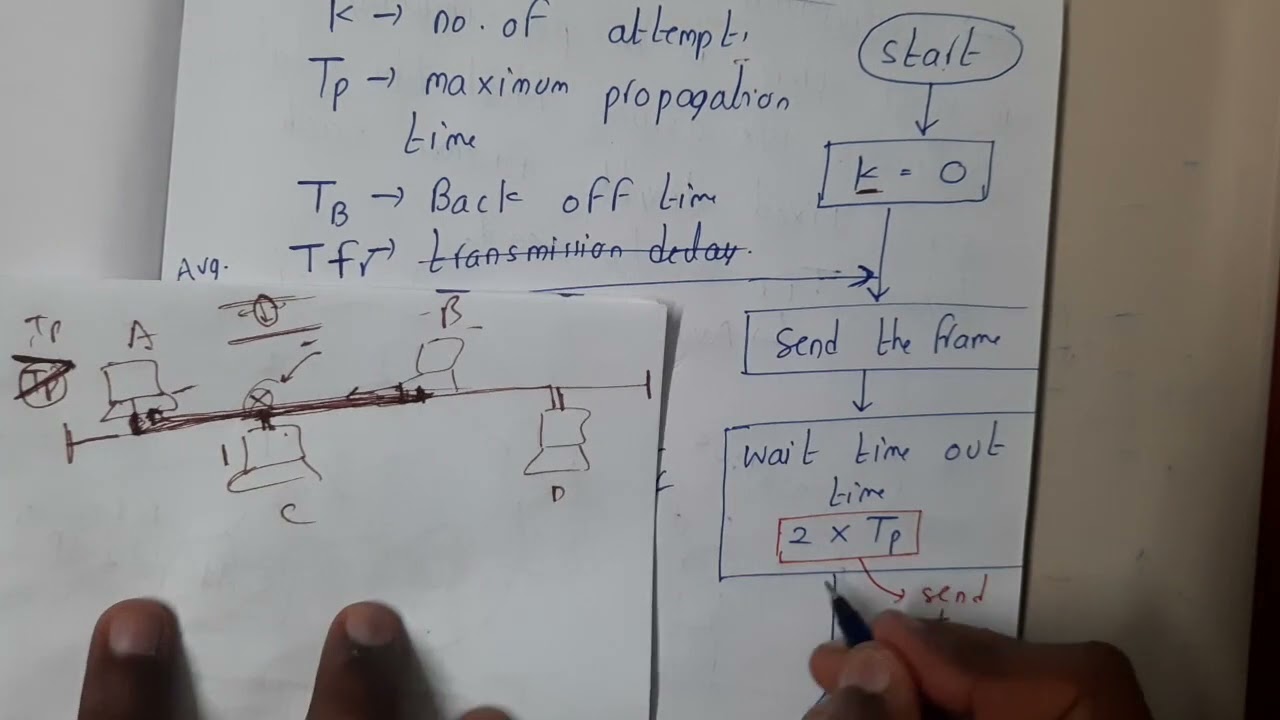 K → no. of attempt.
Tp → maximum propagation
time
TB → Back off time
Avg. Tfr → transmission delay.
start
k = 0
send the frame
wait time out
time
2 × Tp
send
Tp
Tp
A
B
C
D